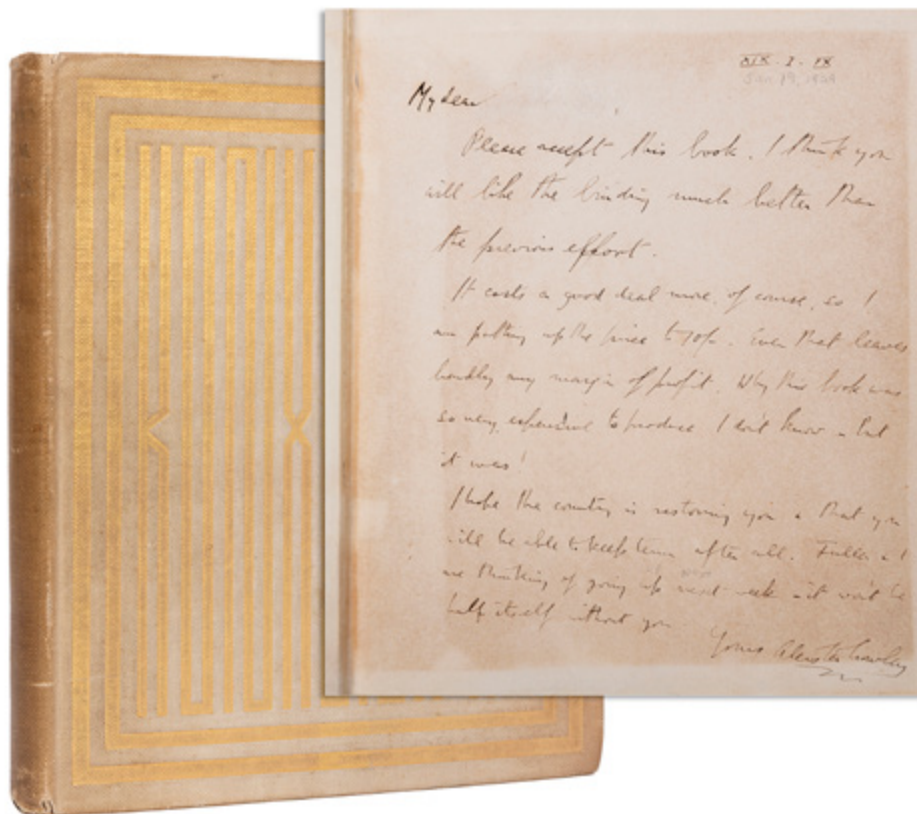 XIX . I . IX
Jan 19, 1909
My dear
Please accept this book. I think you
will like the binding much better than
the previous effort.
It costs a good deal more, of course, so I
am putting up the price to 10/-. Even that leaves
hardly any margin of profit. Why this book was
so very expensive to produce I don't know – but
it was!
I hope the country is restoring you & that you
will be able to keep term after all. Fuller & I
are thinking of going up next week – it won't be
half itself without you.
Yours Aleister Crowley